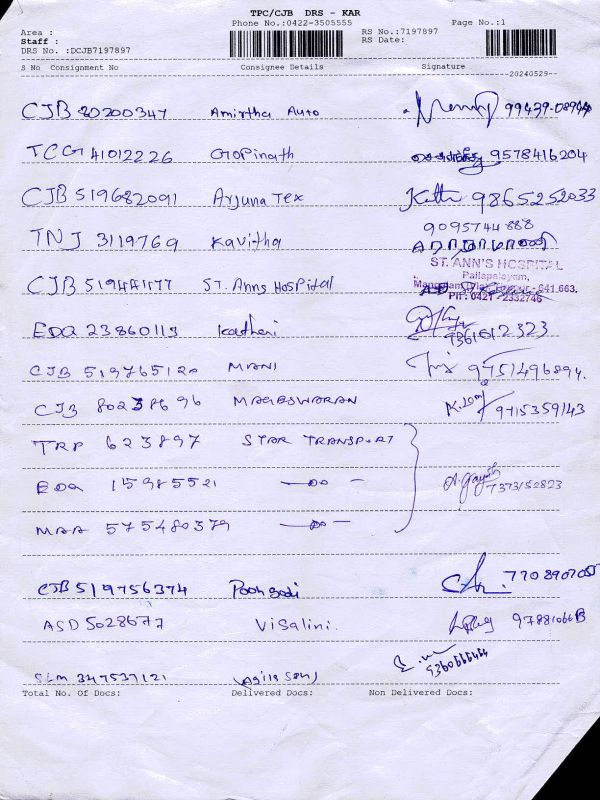 TPC/CJB DRS - KAR
Phone No.:0422-3505555 Page No.:1
Area : RS No.:7197897
Staff : RS Date:
DRS No. :DCJB7197897
S No Consignment No Consignee Details Signature
20240529
CJB 20200347 Amirtha Auto 99439-08944
TCG 41012226 Gopinath 9578416204
CJB 519682091 Arjuna Tex 9865252033
TNJ 3119769 Kavitha 9095744888
CJB 519441177 ST. Anns Hospital
ST. ANN'S HOSPITAL
Pallapalayam,
641 663.
PH: 0421 - 2332746
EDQ 23860113 Kadheri 9361612323
CJB 519765120 MANI 9751496894
CJB 80238696 MAGESWARAN 9715359143
TRP 623897 STAR TRANSPORT
EDQ 15985521 — DO — 7373152823
MAA 575480379 — DO —
CJB 519756374 Poongodi 7708907055
ASD 5028677 Visalini.
SLM 347537121 9360666444
Total No. Of Docs: Delivered Docs: Non Delivered Docs: